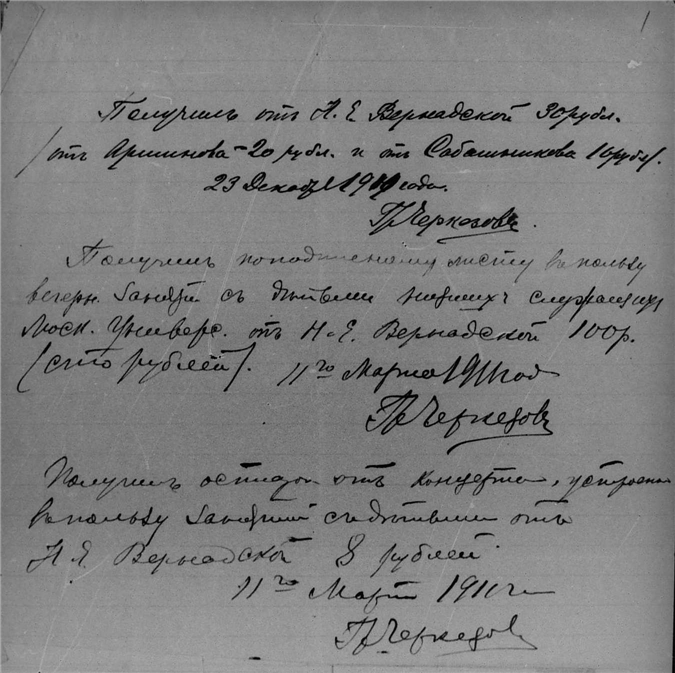 1
Получилъ отъ Н. Е. Вернадской 30 рубл.
(отъ Аршинова - 20 рубл. и отъ Сабашникова 10 рубл.
23 Декабр 1910 года.
Гр Черкезовъ
Получилъ по подписному листу въ пользу
вечерн. занятій съ дѣтьми низшихъ служащихъ
Моск. Универс. отъ Н. Е. Вернадской 100 р.
(сто рублей). 11го Марта 1911 год
Гр Черкезовъ
Получилъ остаток отъ концерта,
въ пользу занятій съ дѣтьми отъ
Н. Е. Вернадской 8 рублей
11го Март 1911 г.
Гр Черкезов